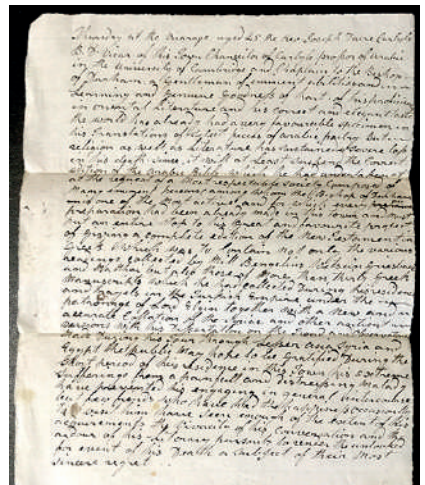 Thursday at the Vicarage, aged 45 the rev Joseph Dacre Carlyle
B.D. Vicar of this Town Chancellor of Carlisle profesor of arabic
in the University of Cambridge and Chaplain to the Bishop
of Durham, a Gentleman of eminent abilities and in
Learning and Genuine Goodness of heart. of his proficiency
in oriental Literature and his correct and elegant taste
the world has already had a very favourable specimen in
his Translations of select pieces of arabic poetry but as
religion as well as Literature has sustained a severe loss
in his death since, it will at least suspend the correct
edition of the Arabic Bible which he had undertaken at
at the request of that respectable Society Composed of
Many eminent persons among whom the Bishop of Durham
is one of the most active and for which every
preparation had been already made in this town and must
put an entire stop to his Great and favourite project
of giving a complete edition of the New Testament in
Greek which was to Contain not only the various
readings collected by Mill Bengelius Wetstein Griesbach
and Matthai but also those of More than thirty Greek
Manuscripts which he had collected During his residence
in the Turkish Empire under the
patronage of Lord Elgin together with a New and
accurate Collation of the Syriac and other antient
versions with his
Made During his Tour through Lesser asia Syria and
Egypt the public May hope to be Gratified During the
short period of his residence in this Town his extreme
sufferings from a painfull and distressing Malady
have prevented his engaging in general
but few friends who have had the happiness occasionally
to have seen enough of the extent of his
acquirements the vivacity of his Conversation and the
ardour of his literary pursuits to render the
for event of his Death a subject of their Most
sincere regret